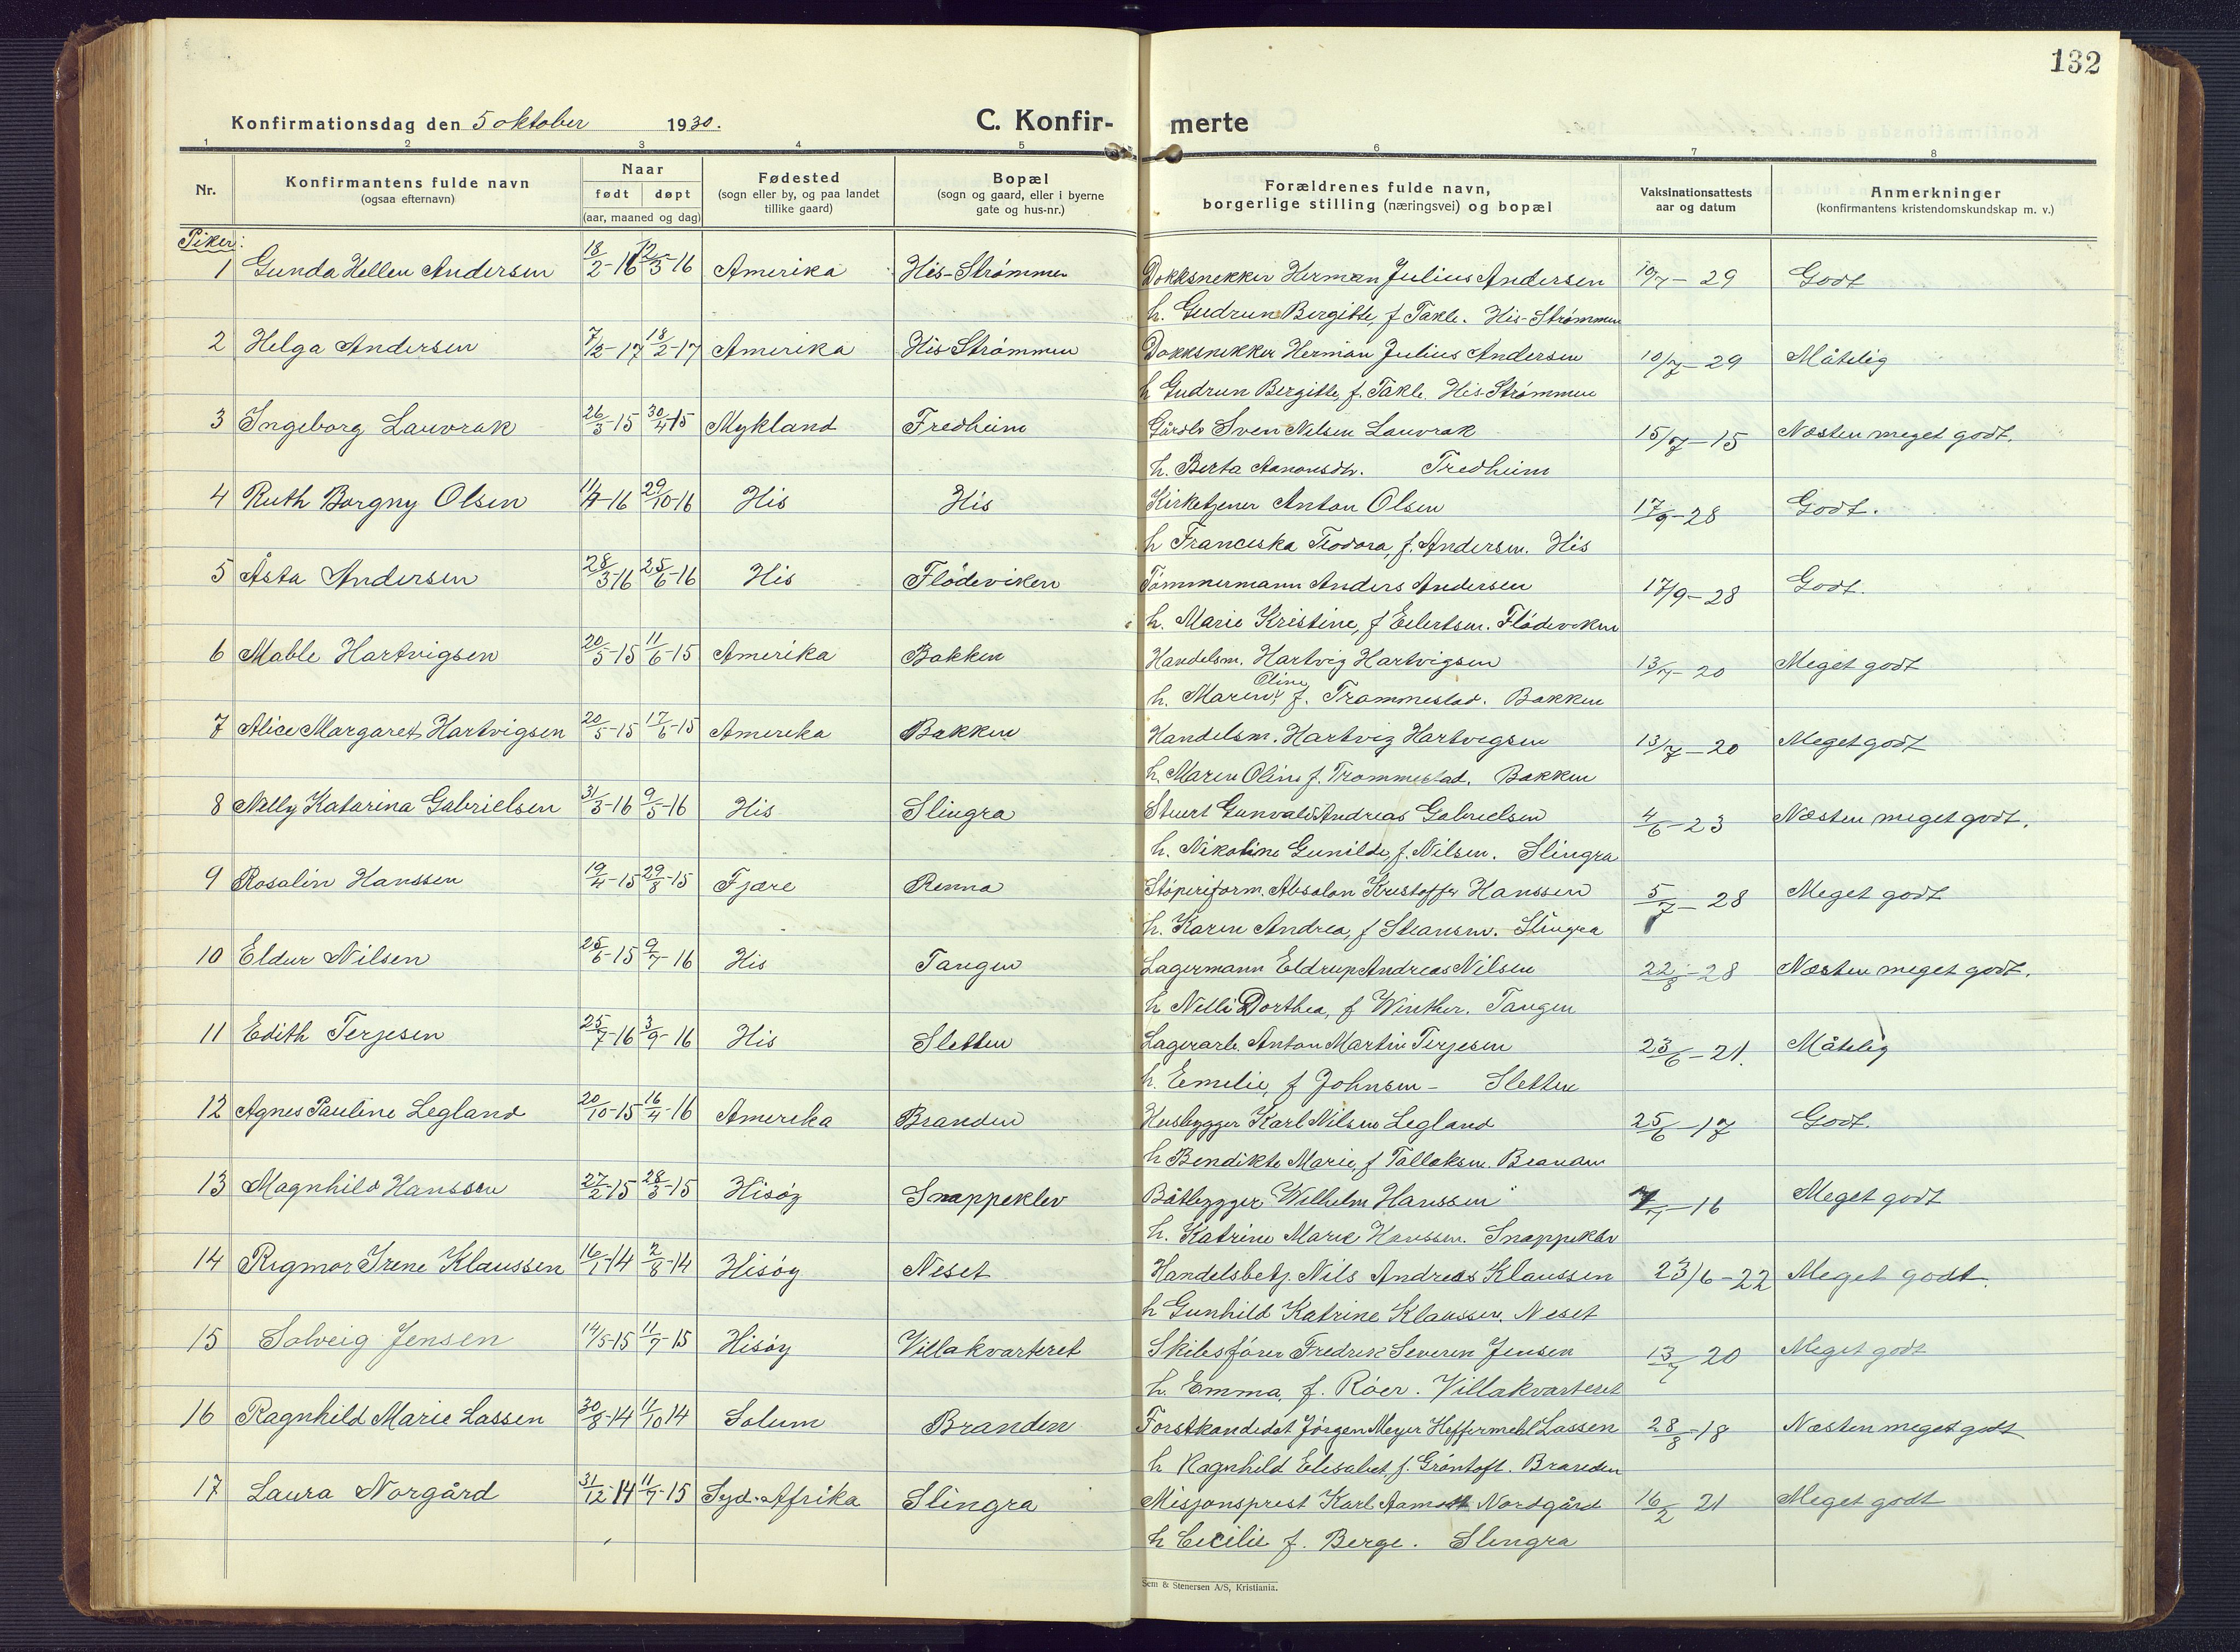 132
Konfirmationsdag den 5 oktober 1930.
C. Konfir- merte
1 2 3 4 5 6 7 8
Nr.
Konfirmantens fulde navn
(ogsaa efternavn)
Naar
født døpt
(aar, maaned og dag)
Fødested
(sogn eller by, og paa landet
tillike gaard)
Bopæl
(sogn og gaard, eller i byerne
gate og hus-nr.)
Forældrenes fulde navn,
borgerlige stilling (næringsvei) og bopæl
Vaksinationsattests
aar og datum
Anmerkninger
(konfirmantens kristendomskundskap m. v.)
Piker:
1 Gunda Hellen Andersen 18/2-16 12/3-16 Amerika His-Strømmen Dokksnekker Herman Julius Andersen 10/7-29 Godt
h. Gudrun Bergitte, f Takle. His-Strømmen
2 Helga Andersen 7/2-17 18/2-17 Amerika His Strømmen Dokksnekker Herman Julius Andersen 10/7-29 Måtelig
h Gudrun Bergitte, f. Takle. His Strømmen
3 Ingeborg Lauvrak 26/3-15 30/4-15 Mykland Fredheim Gårdbr Sven Nilsen Lauvrak 15/7-15 Næsten meget godt.
h. Berta Aanonsdtr. Fredheim
4 Ruth Borgny Olsen -16 29/10-16 His His Kirketjener Anton Olsen 17/9-28 Godt.
h Franciska Teodora, f. Andersen. His
5 Åsta Andersen 28/3-16 25/6-16 His Flødeviken Tømmermann Anders Andersen 17/9-28 Godt.
h. Marie Kristine, f Eilertsen. Flødeviken
6 Mable Hartvigsen 20/5-15 11/6-15 Amerika Bakken Handelsm. Hartvig Hartvigsen 13/7-20 Meget godt
h. Maren Oline, f. Trommestad. Bakken
7 Alice Margaret Hartvigsen 20/5-15 17/6-15 Amerika Bakken Handelsm. Hartvig Hartvigsen 13/7-20 Meget godt
h. Maren Oline f. Trommestad. Bakken
8 Nelly Katarina Gabrielsen 31/3-16 9/5-16 His Slingra Stuert Gunvald Andreas Gabrielsen 4/6-23 Næsten meget godt.
h. Nikoline Gunilde, f. Nilsen. Slingra
9 Rosalin Hanssen 19/4-15 29/8-15 Fjære Renna Støperiform. Absalon Kristoffer Hanssen 5/7-28 Meget godt
h. Karen Andrea, f Steansen. Slingra
10 Eldur Nilsen 25/6-15 9/7-16 His Tangen Lagermann Eldrup Andreas Nilsen 22/8-28 Næsten meget godt.
h Nelli Dorthea, f Winther. Tangen
11 Edith Terjesen 25/7-16 3/9-16 His Sletten Lagerarb. Anton Martin Terjesen 23/6-21. Måtelig
h. Emelie, f Johnsen - Sletten
12 Agnes Pauline Legland 20/10-15 16/4-16 Amerika Branden Husbygger Karl Nilsen Legland 25/6-17 Godt.
h Bendikte Marie, f Tallaksen. Branden
13 Magnhild Hanssen 27/2-15 28/3-15 Hisøy Snappeklev Båtbygger Wilhelm Hanssen -16 Meget godt
h. Katrine Marie Hanssen. Snappeklev
14 Rigmor Irene Klaussen 16/1-14 2/8-14 Hisøy Neset Handelsbetj. Nils Andreas Klaussen 23/6-22 Meget godt.
h Gunhild Katrine Klaussen. Neset
15 Solveig Jensen 14/5-15 11/7-15 Hisøy Villakvarteret Skibsfører Fredrik Severin Jensen 13/7 20 Meget godt
h. Emma, f. Røer. Villakvarteret
16 Ragnhild Marie Lassen 30/8-14 11/10 14 Solum Branden Forstkandidat Jørgen Meyer Heffermehl Lassen 28/8-18 Næsten meget godt
h Ragnhild Elisabet, f. Grøntoft. Branden
17 Laura Norgård 31/12-14 11/7-15 Syd-Afrika Slingra Misjonsprest Karl Aamodt Nordgård 16/2 21 Meget godt
h Cecilie f. Berge. Slingra
Sem & Stenersen A/S, Kristiania.